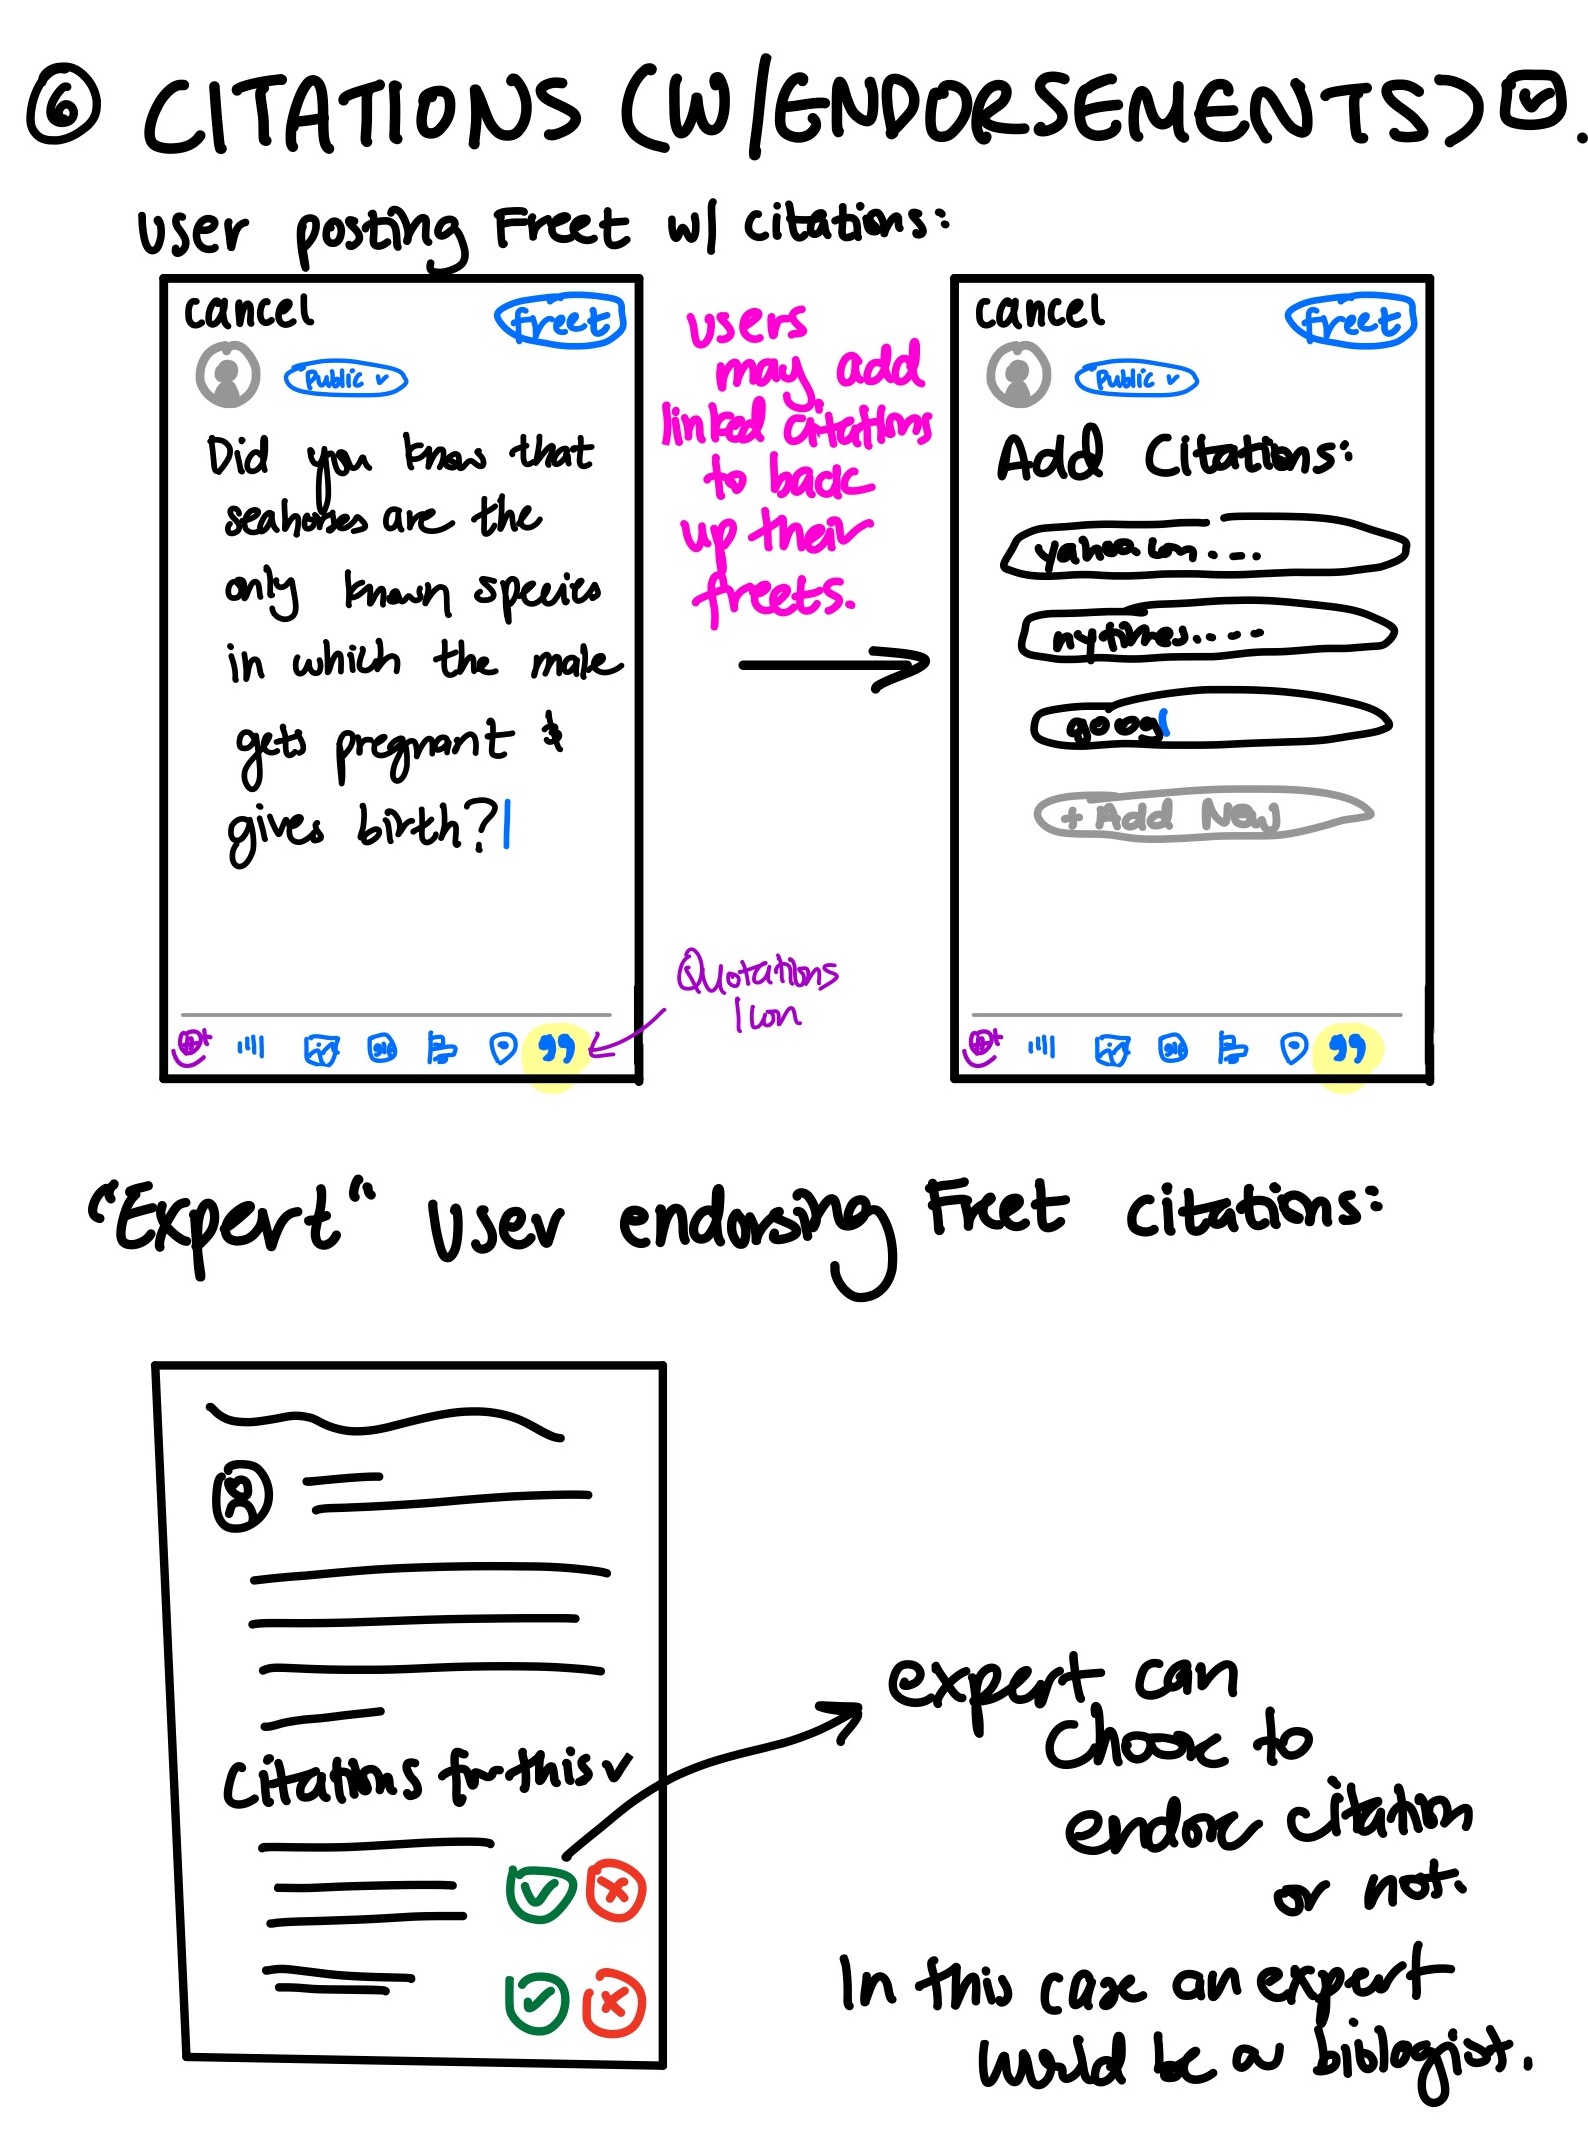 6 CITATIONS (W/ENDORSEMENTS)
User posting Freet w/ citations:
cancel
freet
Public
Did you know that
seahorses are the
only known species
in which the male
gets pregnant &
gives birth?
users
may add
linked citations
to back
up their
freets.
cancel
freet
Public
Add Citations:
yahoo.com....
nytimes.....
goog
+ Add New
Quotations
Icon
GIF
99
GIF
99
"Expert" User endorsing Freet citations:
Citations for this
expert can
choose to
endorse citation
or not.
In this case an expert
would be a biologist.